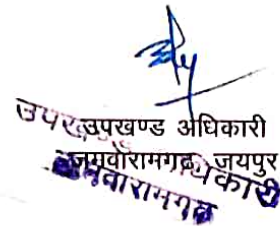 उपखण्ड अधिकारी
जमवारामगढ़ जयपुर
उपखण्ड अधिकारी
जमवारामगढ़